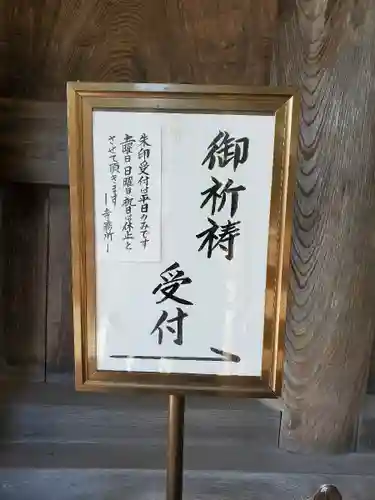 御祈祷
受付
朱印受付は平日のみです
土曜日日曜日祝日は休止と
させて頂きます
ー寺務所ー